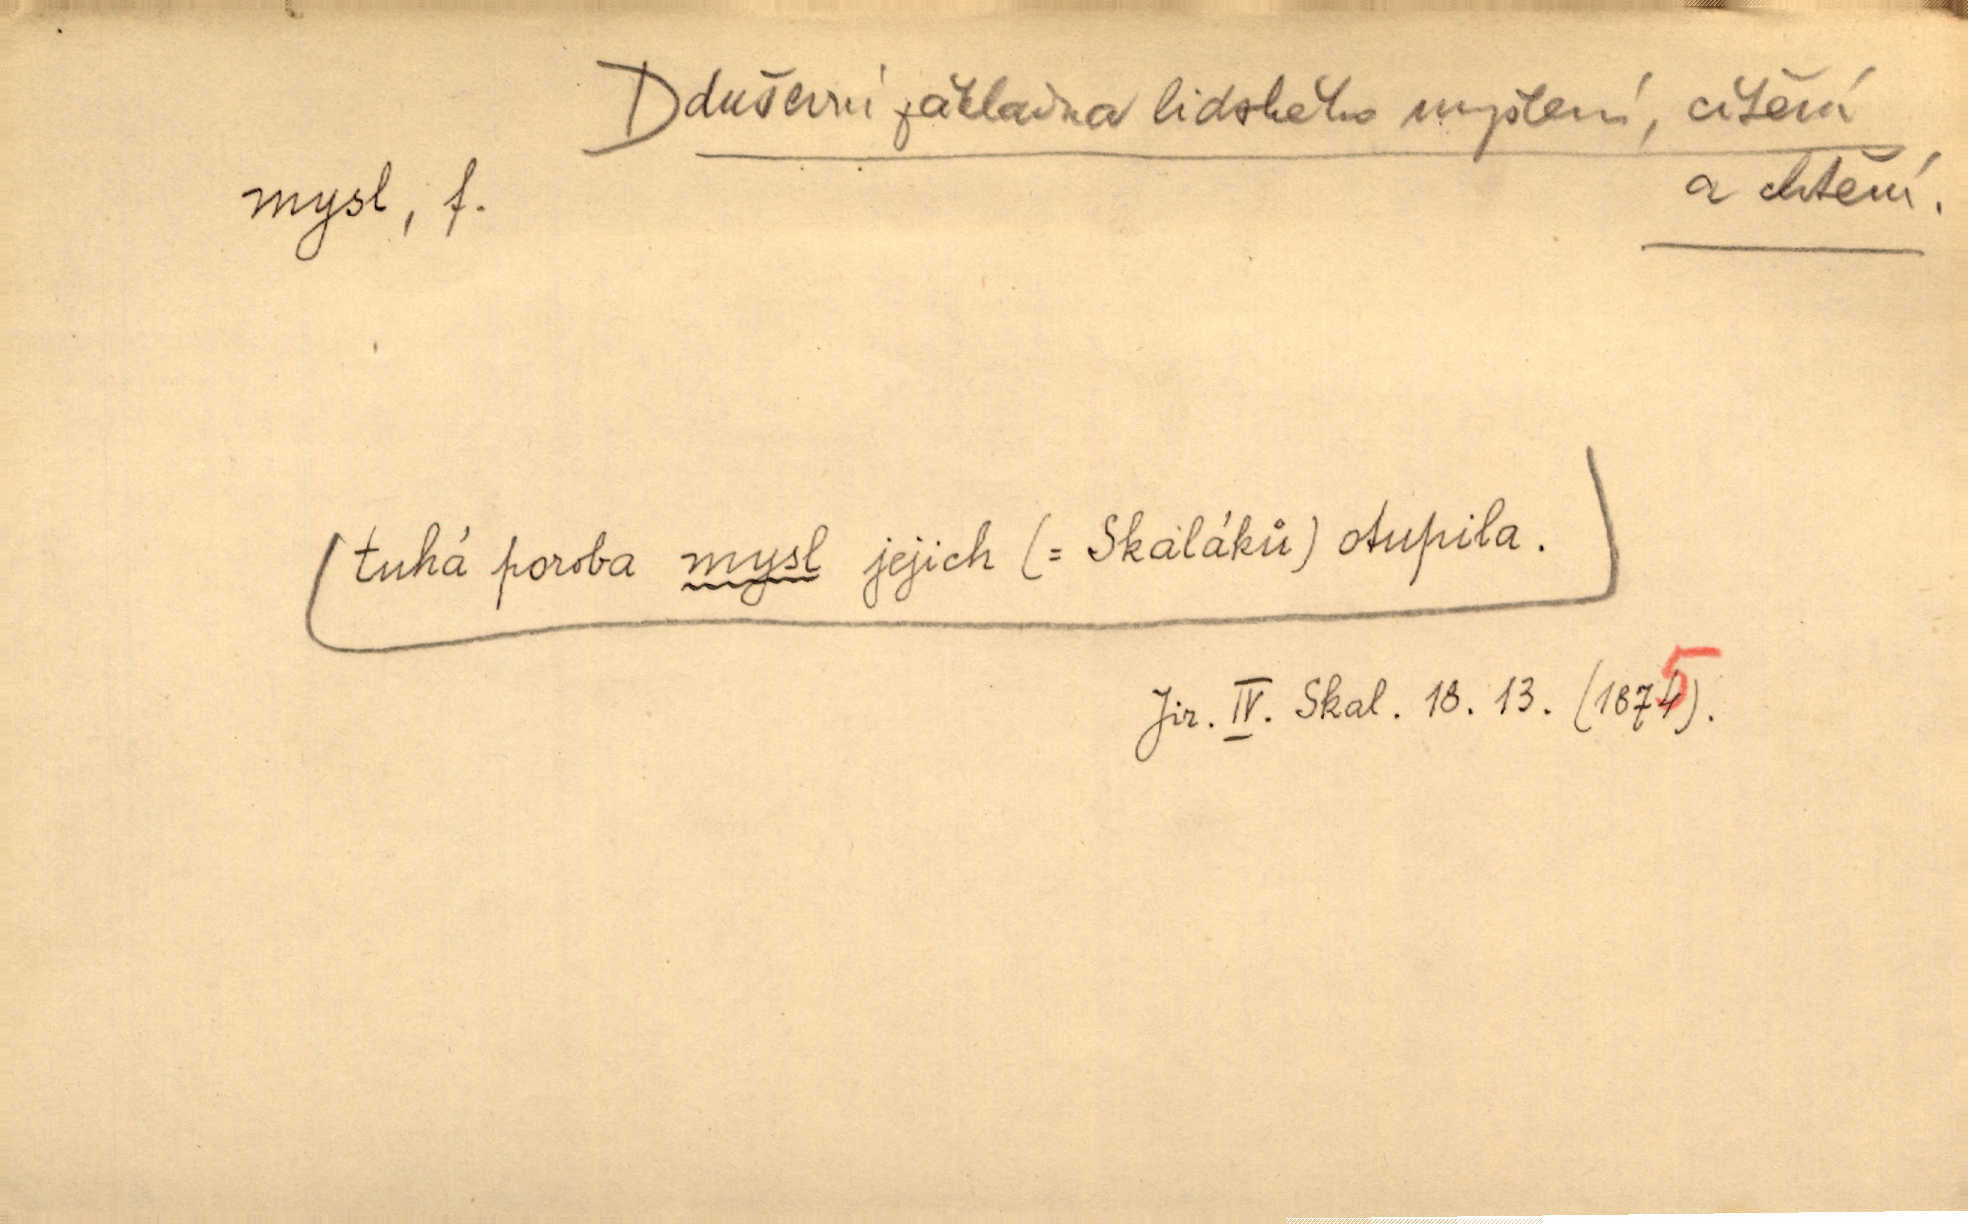 D duševní základna lidského myšlení, cítění
a chtění.
mysl, f.
tuhá poroba mysl jejich (= Skaláků) otupila.
Jir. IV. Skal. 18. 13. (1875).